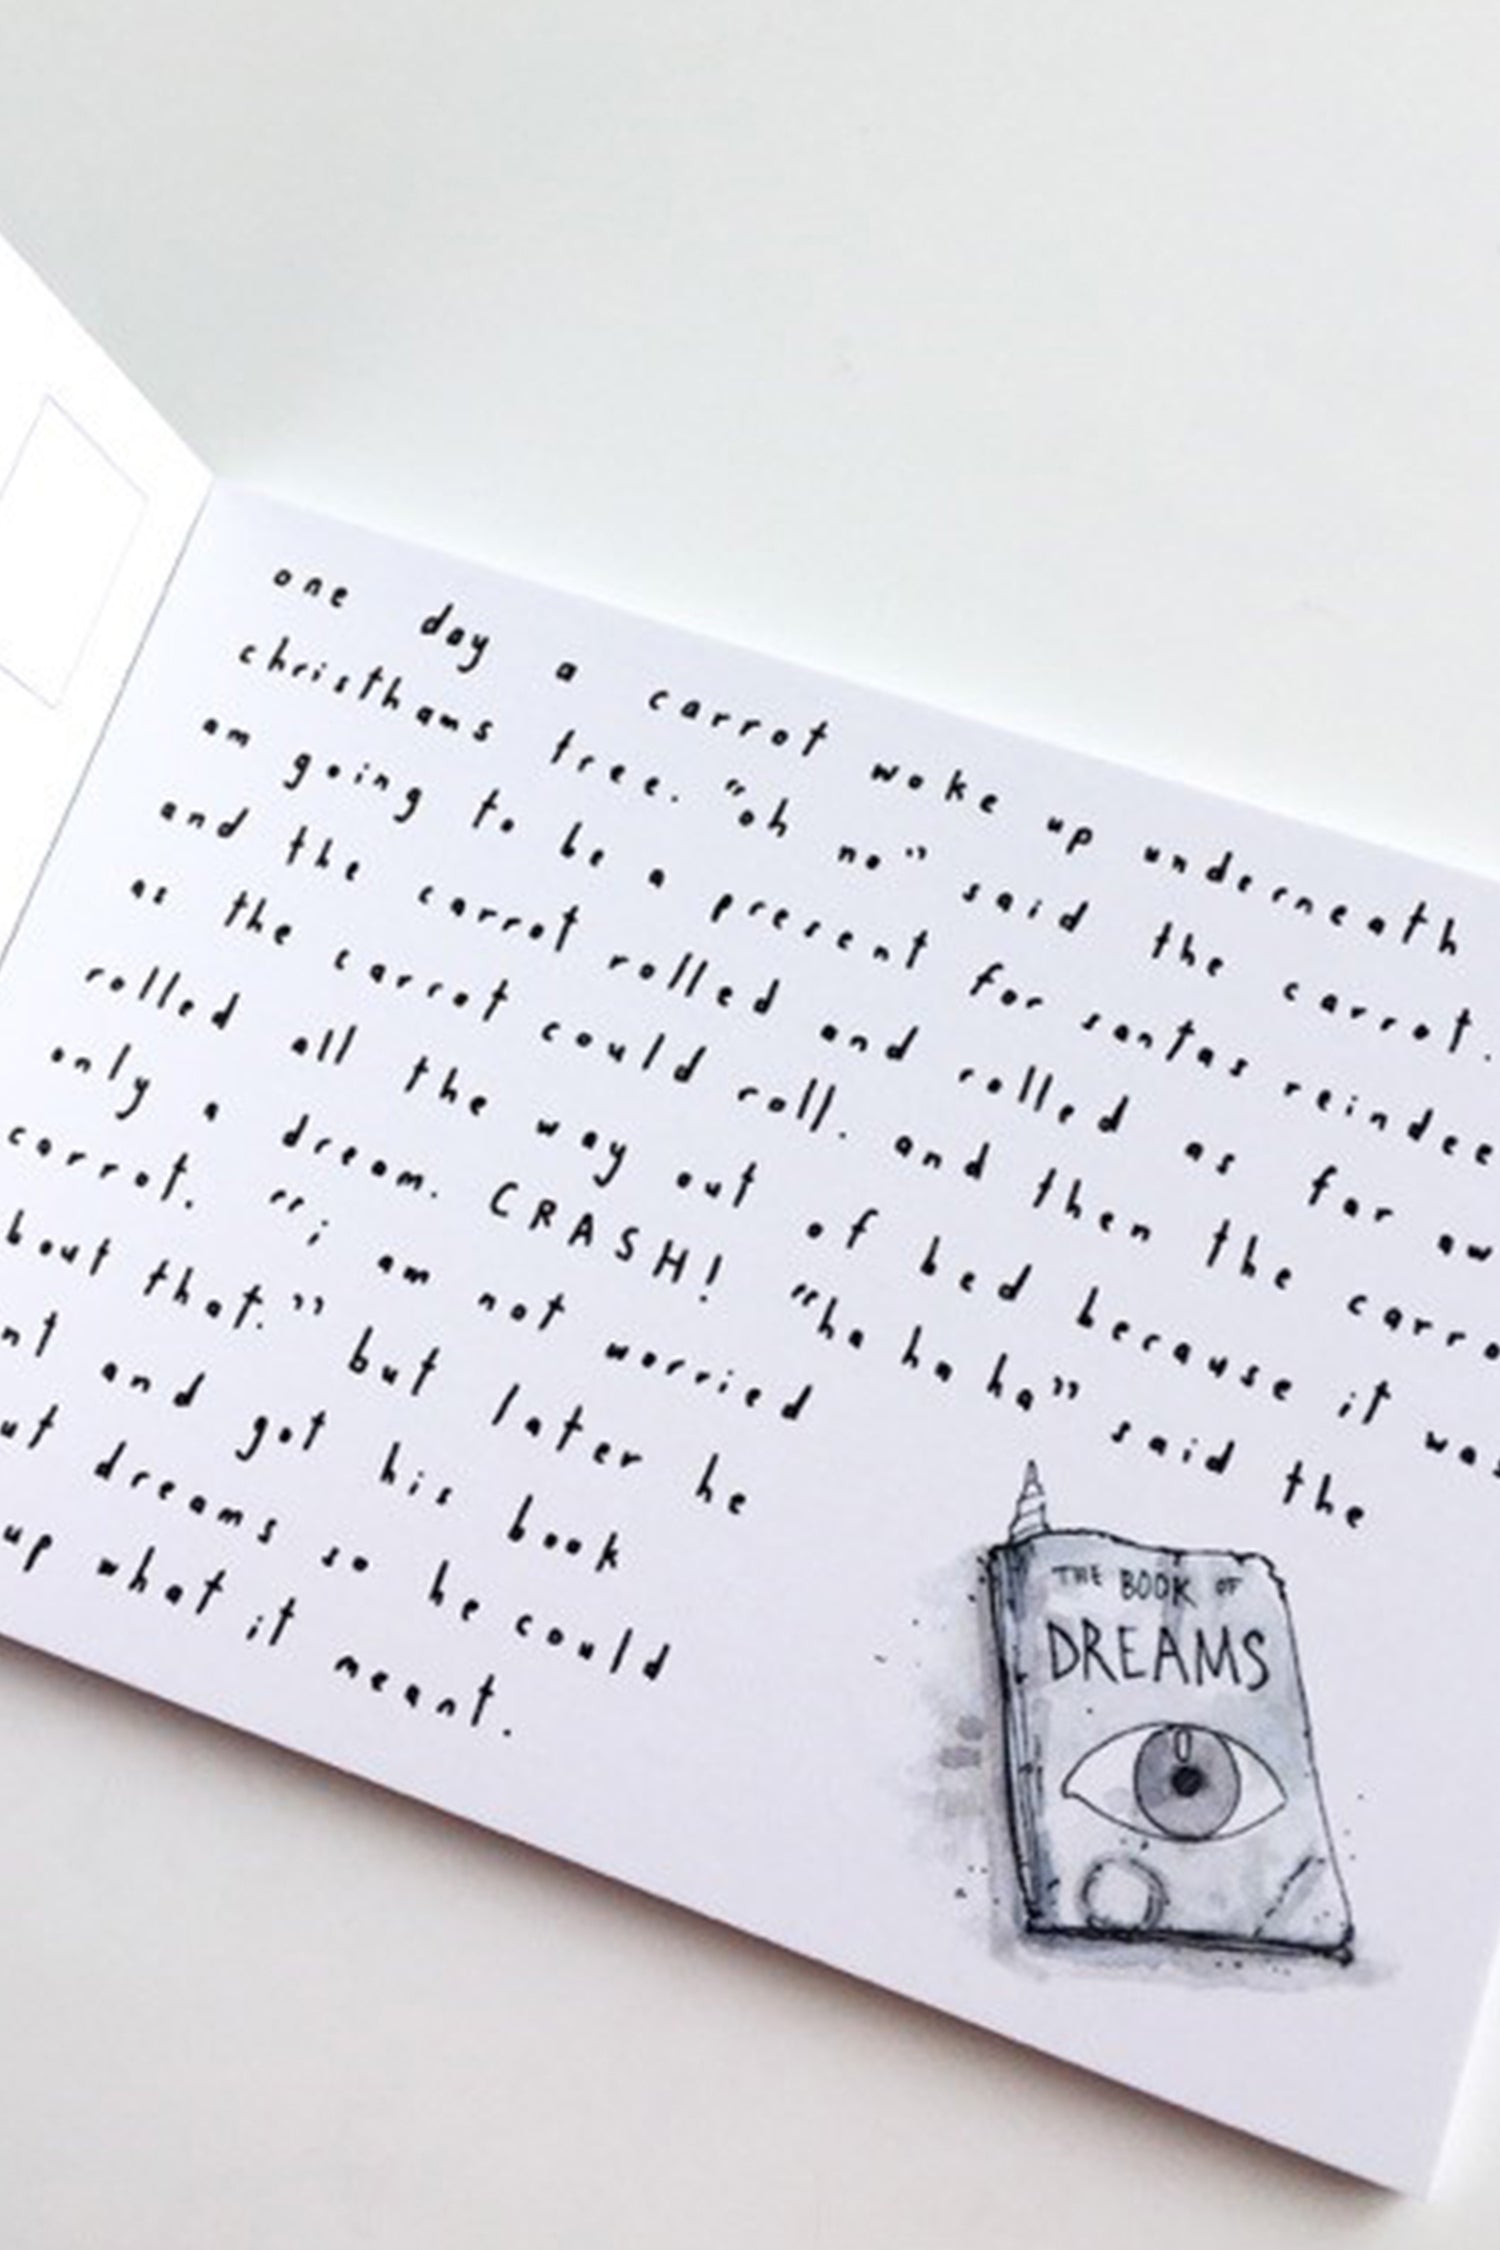 one day a carrot woke up underneath
christhams tree. “oh no” said the carrot.
am going to be a present for santas reindee
and the carrot rolled and rolled as far aw
as the carrot could roll. and then the carro
rolled all the way out of bed because it was
only a dream. CRASH! “ha ha ha” said the
carrot. “i am not worried
bout that.” but later he
nt and got his book
ut dreams so he could
up what it meant.
THE BOOK OF
DREAMS